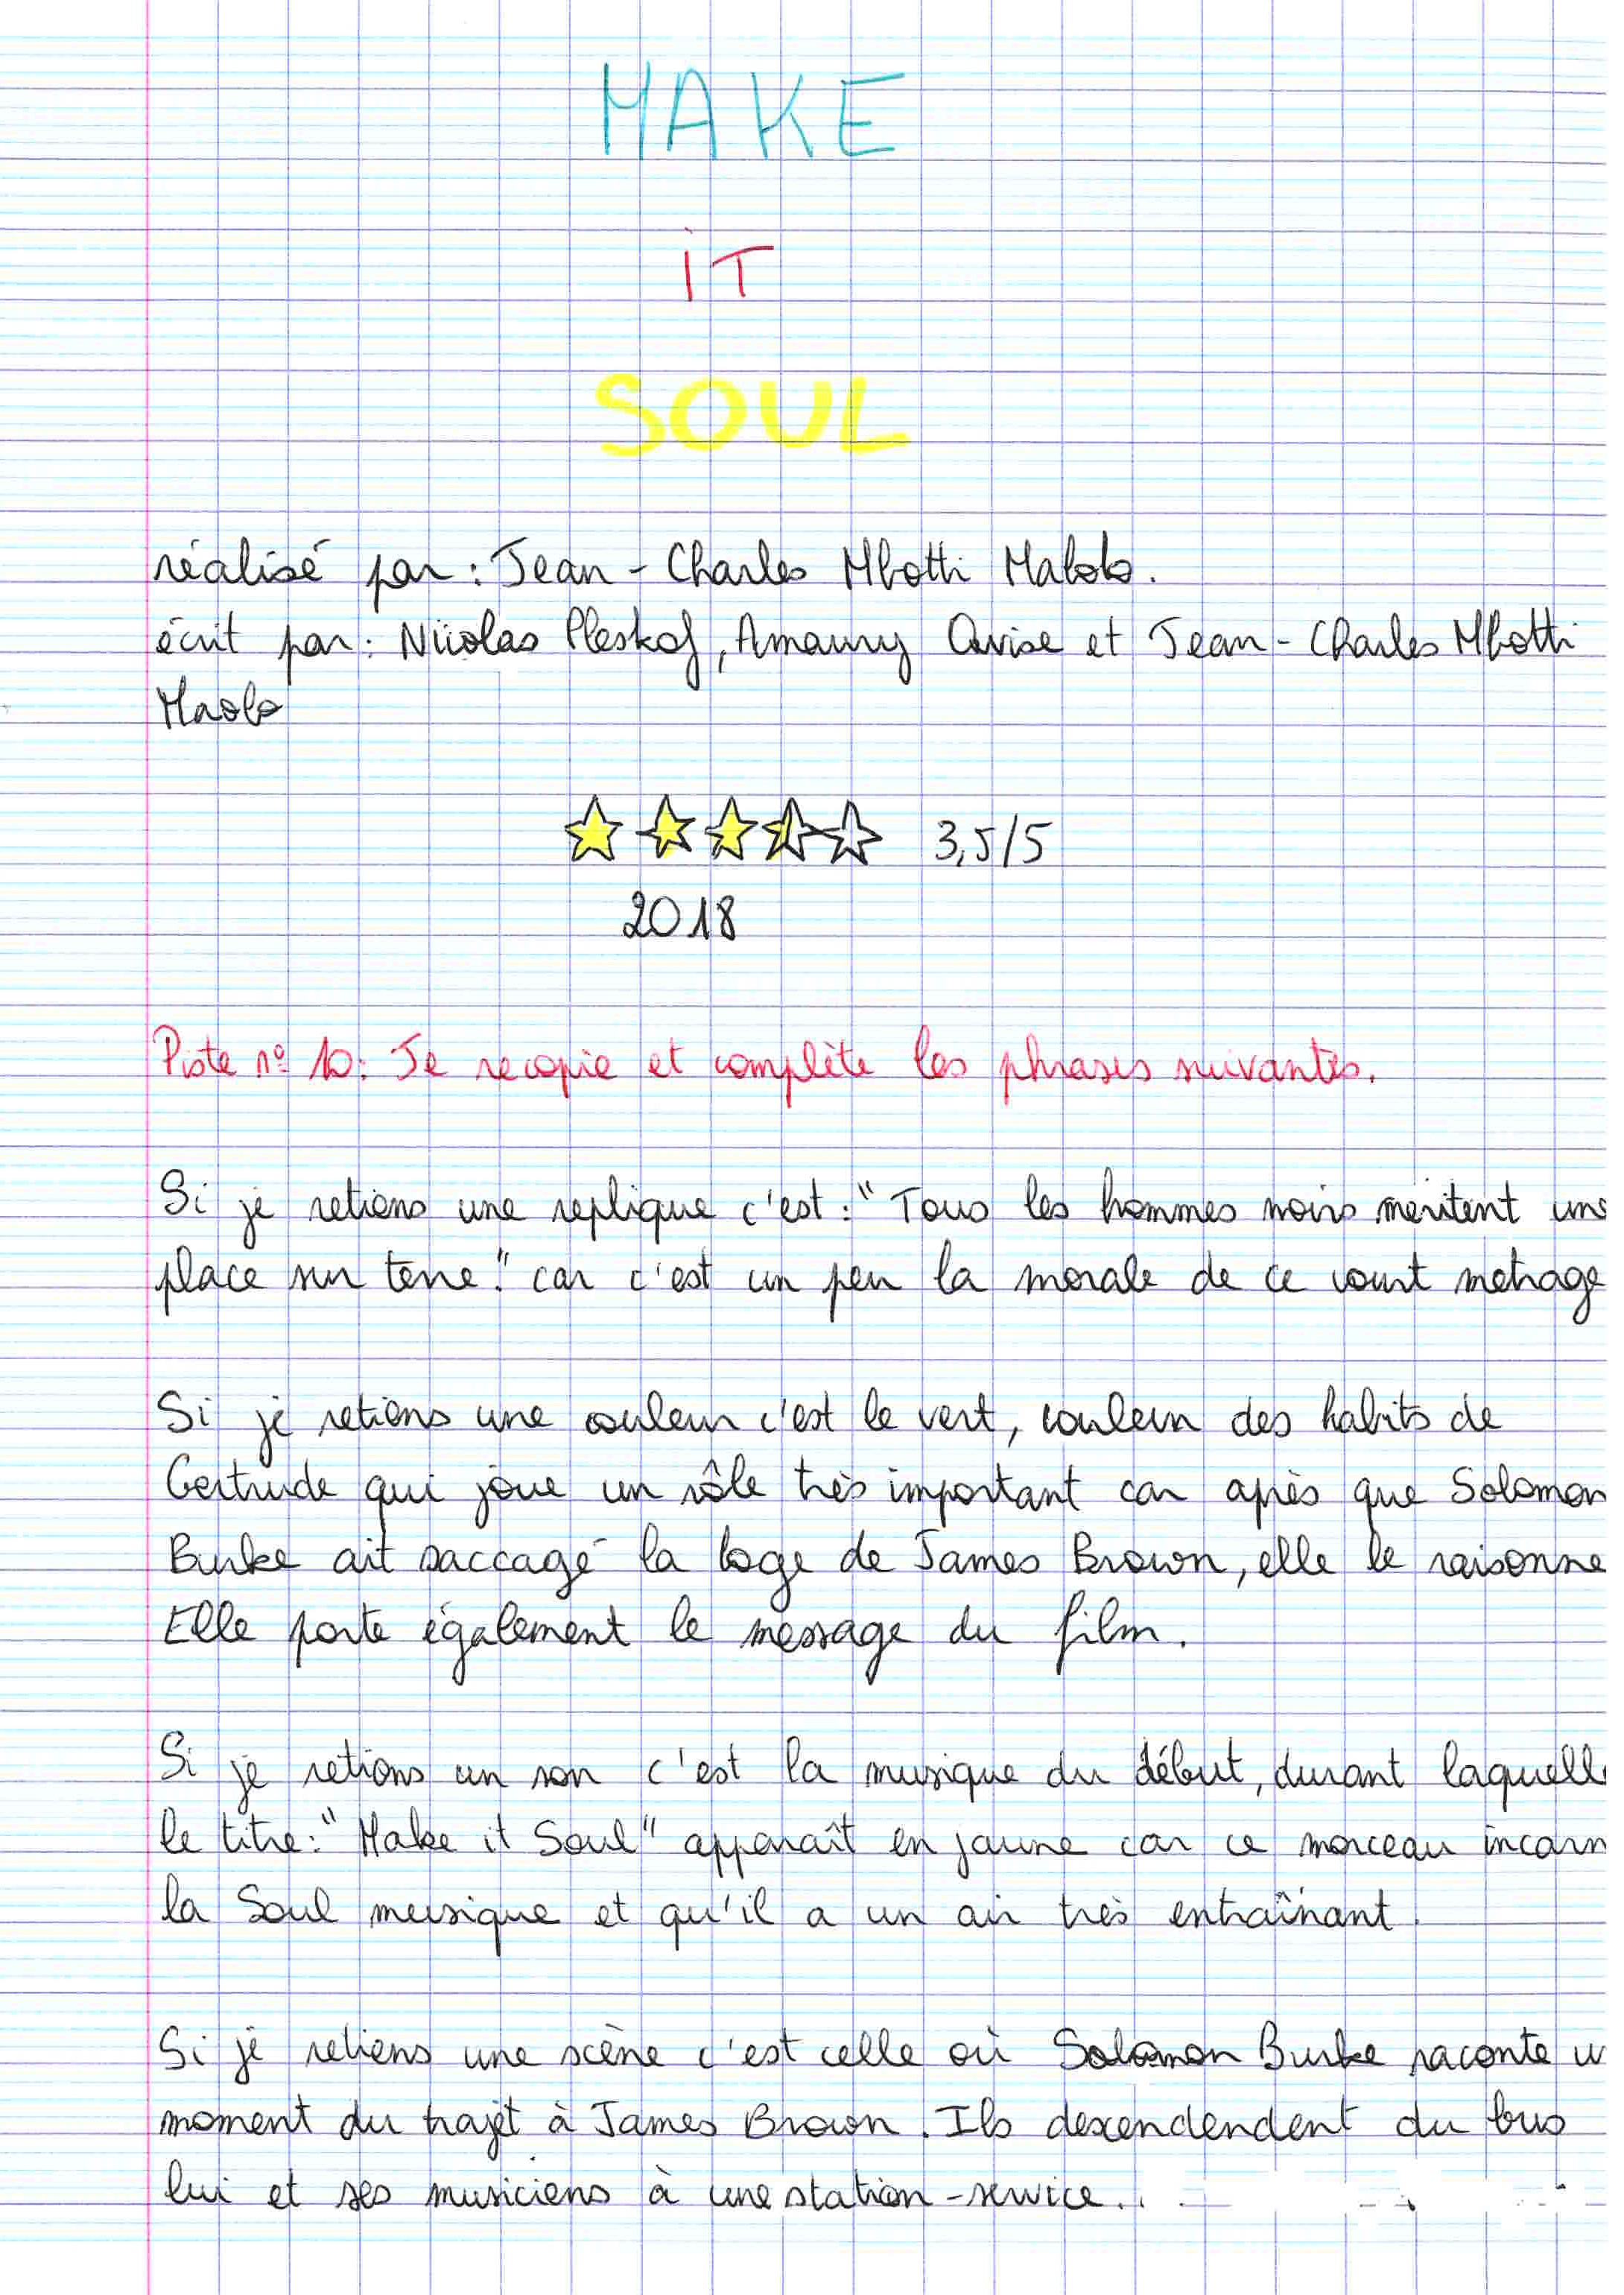 MAKE
iT
SOUL
réalisé par : Jean - Charles Mbotti Malolo.
écrit par : Nicolas Pleskof, Amaury Ovise et Jean - Charles Mbotti
Maolo
3,5/5
2018
Piste n° 10 : Je recopie et complète les phrases suivantes.
Si je retiens une replique c'est : "Tous les hommes noirs meritent une
place sur terre." car c'est un peu la morale de ce court metrage
Si je retiens une couleur c'est le vert, couleur des habits de
Gertrude qui joue un rôle très important car après que Solomon
Burke ait saccagé la loge de James Brown, elle le raisonne
Elle porte également le message du film.
Si je retiens un son c'est la musique du début, durant laquell
le titre : "Make it Soul" apparaît en jaune car ce morceau incarn
la Soul musique et qu'il a un air très entraînant.
Si je retiens une scène c'est celle où Solomon Burke raconte u
moment du trajet à James Brown. Ils descendendent du bus
lui et ses musiciens à une station - service..